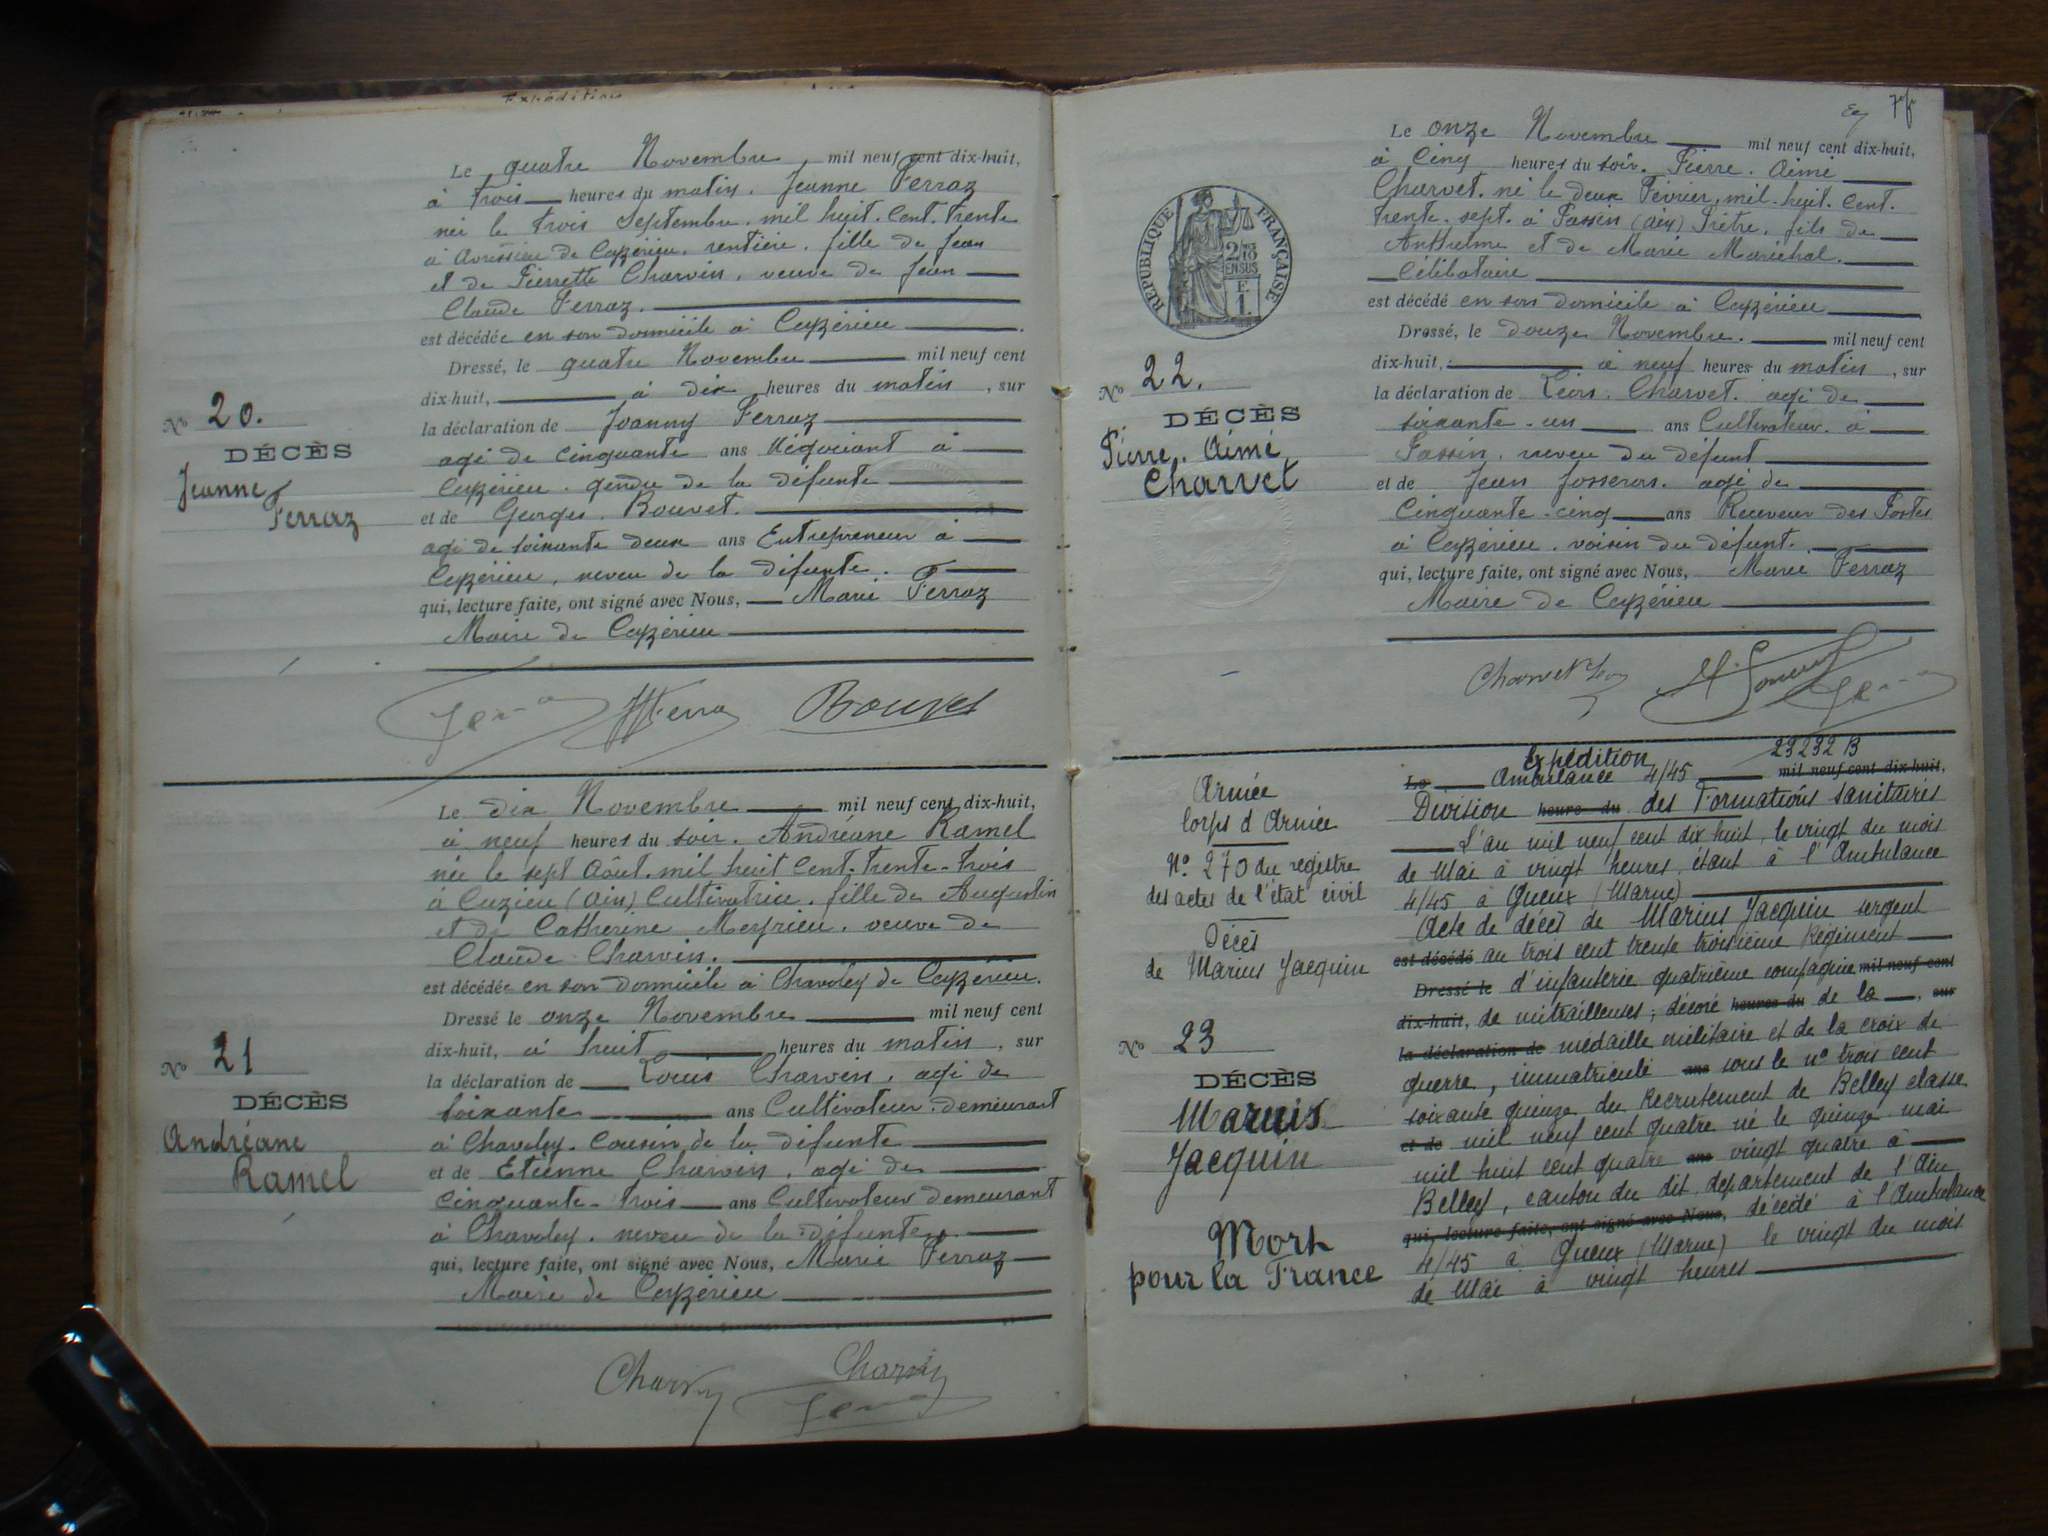 Expédition
Le quatre Novembre mil neuf cent dix-huit,
à trois heures du matin. Jeanne Ferraz
née le trois Septembre. mil huit. cent. trente
à Avressieu de Ceyzérieu. rentière. fille de Jean
et de Pierrette Charvin. veuve de Jean
Claude Ferraz.
est décédée en son domicile à Ceyzérieu
Dressé, le quatre Novembre mil neuf cent
dix-huit, à dix heures du matin, sur
la déclaration de Joanny Ferraz
agé de cinquante ans Négociant à
Ceyzérieu. gendre de la défunte
et de Georges. Bouvet.
agé de soixante deux ans Entrepreneur à
Ceyzérieu, neveu de la défunte.
qui, lecture faite, ont signé avec Nous, Marie Ferraz
Maire de Ceyzérieu
No 20.
DÉCÈS
Jeanne
Ferraz
Bouvet
Le dix Novembre mil neuf cent dix-huit,
à neuf heures du soir. Andréane Ramel
née le sept Août. mil huit cent. trente-trois
à Cuzieu (Ain) Cultivatrice. fille de Augustin
et de Catherine Meyrieu. veuve de
Claude Charvin.
est décédée en son domicile à Chavoley de Ceyzérieu.
Dressé le onze Novembre mil neuf cent
dix-huit, à huit heures du matin, sur
la déclaration de Louis Charvin, agé de
soixante ans Cultivateur. demeurant
à Chavoley. cousin de la défunte
et de Etienne Charvin. agé de
cinquante-trois ans Cultivateur demeurant
à Chavoley. neveu de la défunte.
qui, lecture faite, ont signé avec Nous, Marie Ferraz
Maire de Ceyzérieu
No 21
DÉCÈS
Andréane
Ramel
Charvin
Charvin
Le onze Novembre mil neuf cent dix-huit,
à cinq heures du soir. Pierre. Aimé
Charvet. né le deux Février. mil. huit. cent.
trente. sept. à Passin (Ain) Prêtre. fils de
Anthelme et de Marie Maréchal.
Célibataire
est décédé en son domicile à Ceyzérieu
Dressé, le douze Novembre. mil neuf cent
dix-huit, à neuf heures du matin, sur
la déclaration de Léon. Charvet. agé de
soixante-un ans Cultivateur. à
Passin. neveu du défunt
et de Jean Josseron. agé de
Cinquante-cinq ans Receveur des Postes
à Ceyzérieu. voisin du défunt.
qui, lecture faite, ont signé avec Nous, Marie Ferraz
Maire de Ceyzérieu
REPUBLIQUE FRANÇAISE
2/10
EN SUS
No 22.
DÉCÈS
Pierre. Aimé
Charvet
Charvet Léon
Expédition 23232 B
Le Ambulance 4/45 mil neuf cent dix-huit,
Division heure du des Formations sanitaires
L'an mil neuf cent dix huit, le vingt du mois
de Mai à vingt heures, étant à l'Ambulance
4/45 à Gueux (Marne)
Acte de décès de Marius Jacquin sergent
est décédé au trois cent trente troisième Régiment
Dressé le d'infanterie quatrième compagnie mil neuf cent
dix-huit, de mitrailleuses; décoré heures du de la, sur
la déclaration de médaille militaire et de la croix de
guerre, immatriculé ans sous le n° trois cent
soixante quinze du Recrutement de Belley classe
et de mil neuf cent quatre né le quinze mai
mil huit cent quatre ans vingt quatre à
Belley, canton du dit, département de l'Ain
qui, lecture faite, ont signé avec Nous, décédé à l'Ambulance
4/45 à Gueux (Marne) le vingt du mois
de Mai à vingt heures
Armée
Corps d'Armée
N°. 270 du registre
des actes de l'état civil
Décès
de Marius Jacquin
No 23
DÉCÈS
Maruis
Jacquin
Mort
pour la France